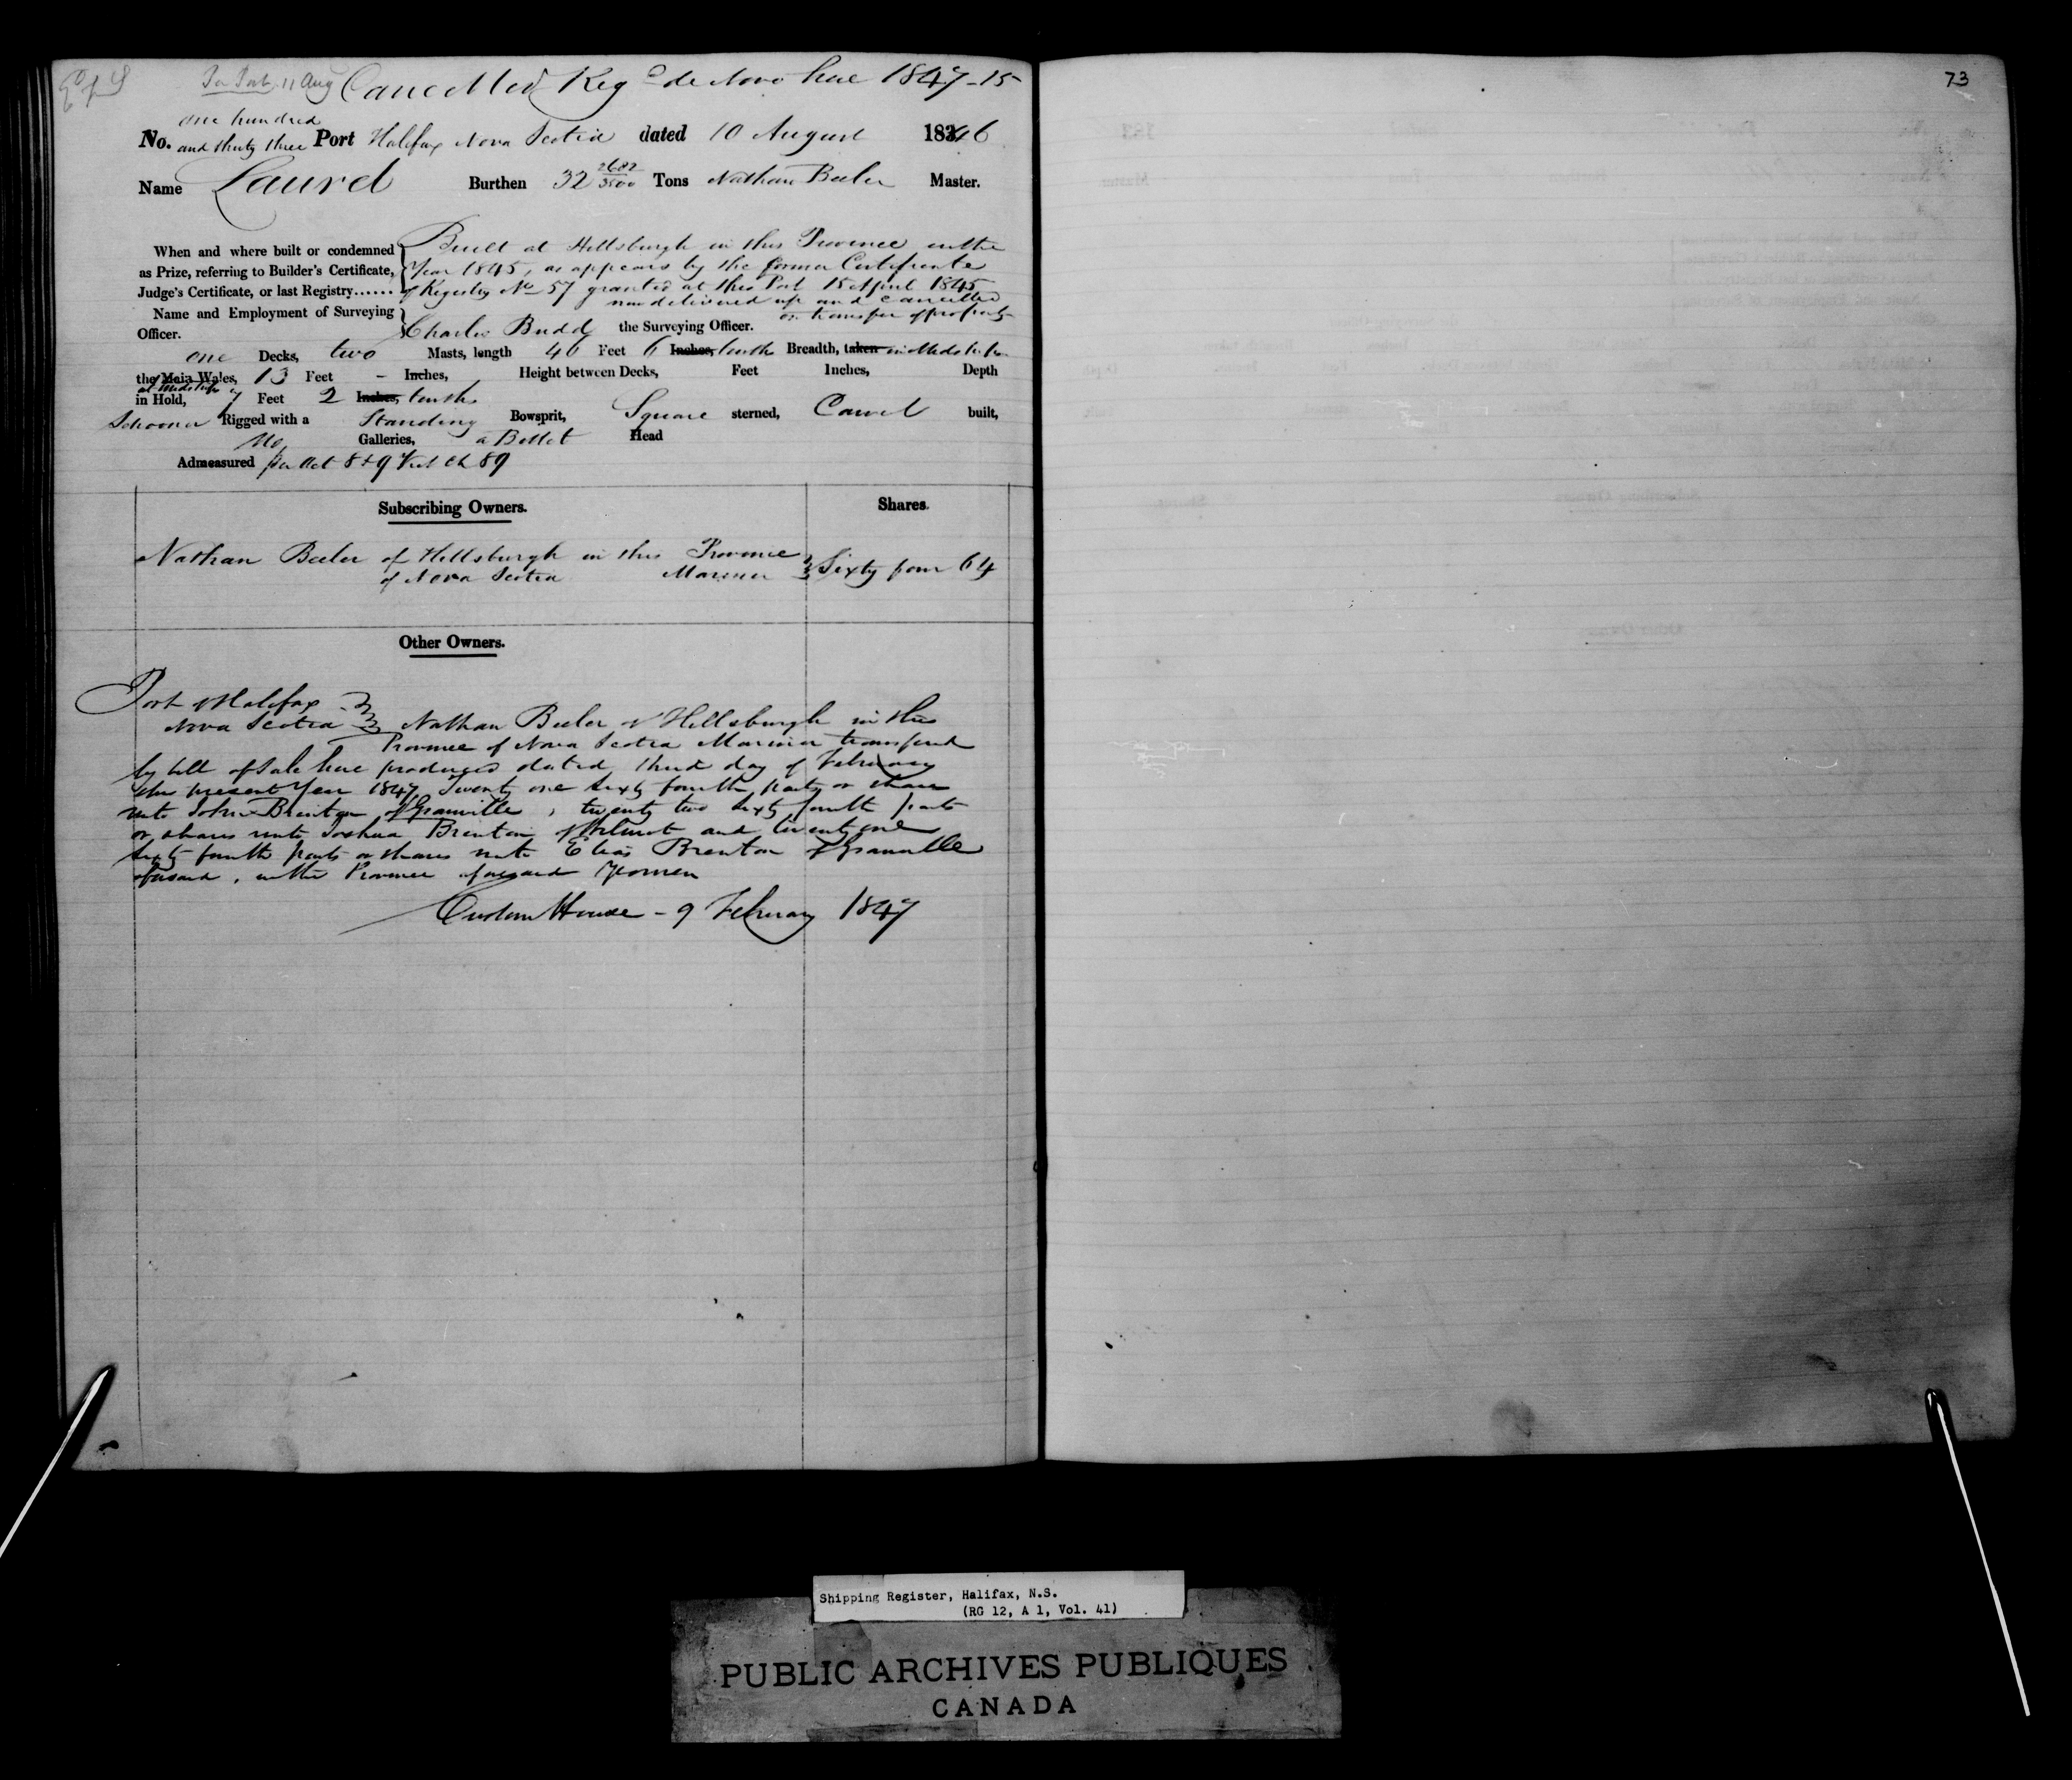 Cancelled Reg de Novo here 1847-15
11 Aug
73
one hundred
No. and thirty three Port Halifax Nova Scotia dated 10 August 1846
Name Laurel Burthen 32 2682/3500 Tons Nathan Beeler Master.
When and where built or condemned as Prize, referring to Builder's Certificate, Judge's Certificate, or last Registry......
Built at Hillsburgh in this Province in the
Year 1845, as appears by the former Certificate
of Registry No 57 granted at this Port 15 April 1845
now delivered up and cancelled
on transfer of property
Name and Employment of Surveying Officer.
Charles Budd the Surveying Officer.
one Decks, two Masts, length 46 Feet 6 Inches, tenths Breadth, taken in Midships
the Main Wales, 13 Feet - Inches, Height between Decks, Feet Inches, Depth
at Midships
in Hold, 7 Feet 2 Inches, tenths
Schooner Rigged with a Standing Bowsprit, Square sterned, Carvel built,
No Galleries, a Billet Head
Admeasured per Act 8 & 9 Vict Ch 89
Subscribing Owners. Shares.
Nathan Beeler of Hillsburgh in this Province
of Nova Scotia Mariner Sixty four 64
Other Owners.
Port of Halifax
Nova Scotia Nathan Beeler of Hillsburgh in this
Province of Nova Scotia Mariner transferred
by bill of Sale here produced dated third day of February
this present Year 1847 Twenty one sixty fourth parts or shares
unto John Brenton of Granville, twenty two sixty fourth parts
or shares unto Joshua Brenton of Wilmot and twenty one
sixty fourth parts or shares unto Elias Brenton of Granville
aforesaid, in the Province aforesaid Yeomen
Custom House - 9 February 1847
Shipping Register, Halifax, N.S.
(RG 12, A 1, Vol. 41)
PUBLIC ARCHIVES PUBLIQUES
CANADA